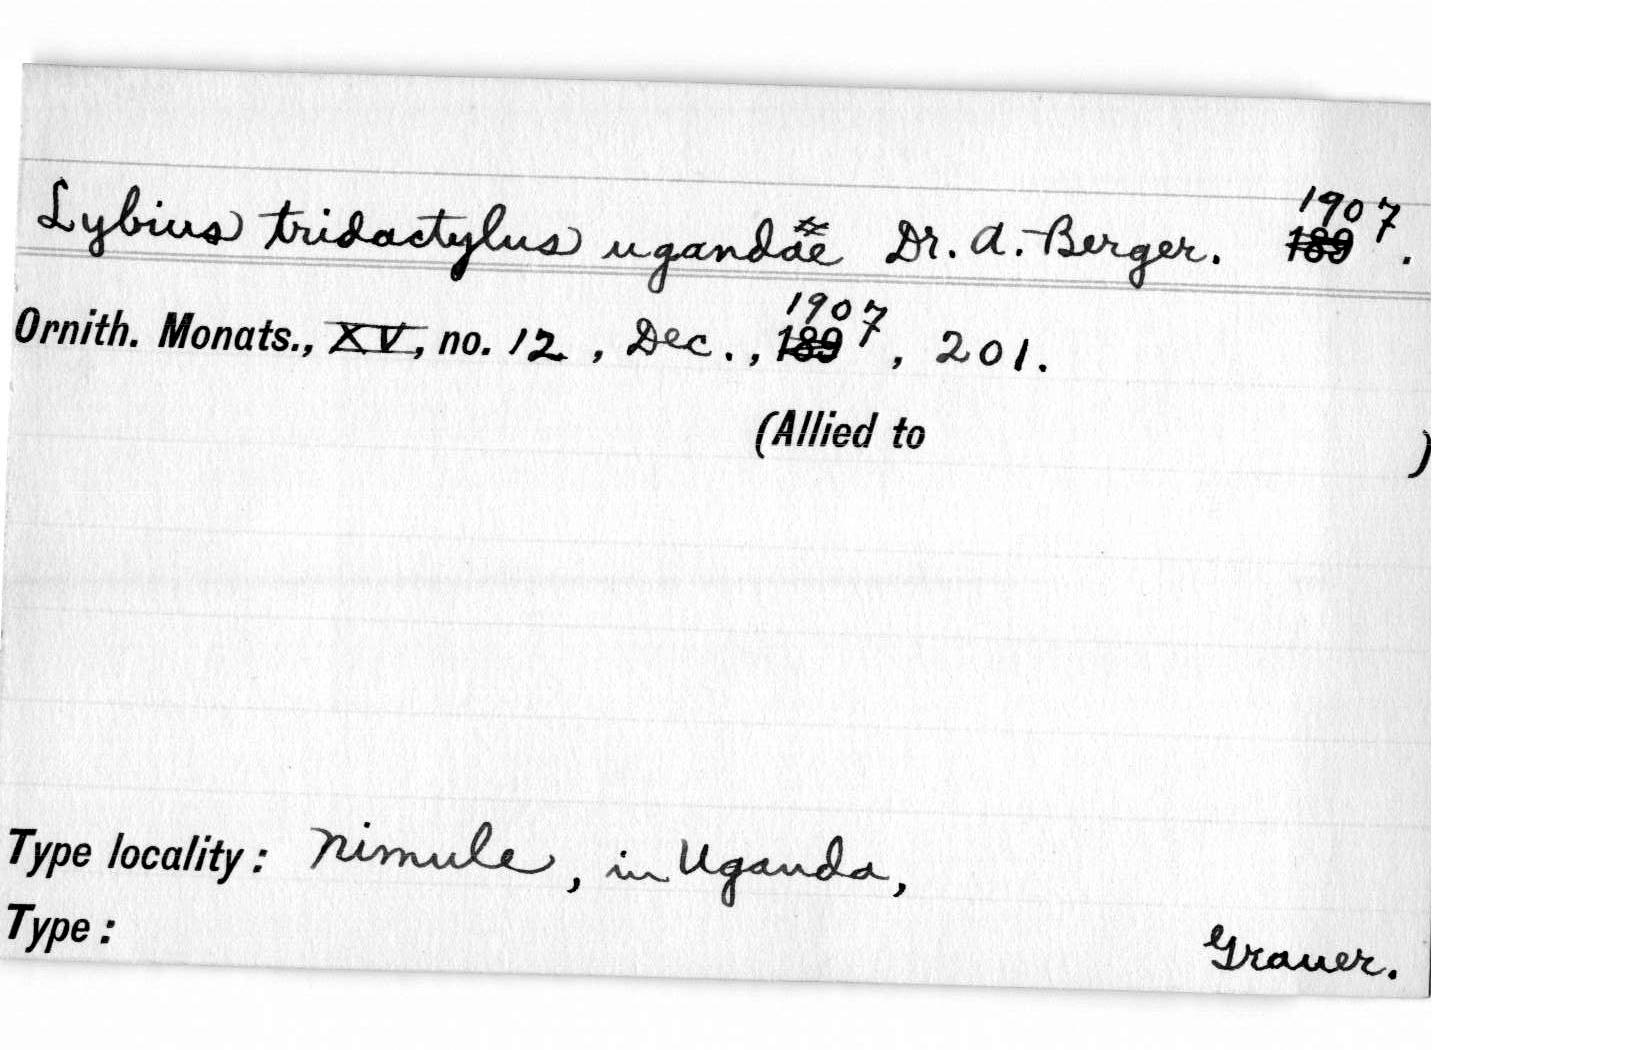 Lybius tridactylus ugandae Dr. A. Berger. 1907.
Ornith. Monats., XV, no. 12, Dec., 1907, 201.
(Allied to )
Type locality: Nimule, in Uganda,
Type: Grauer.